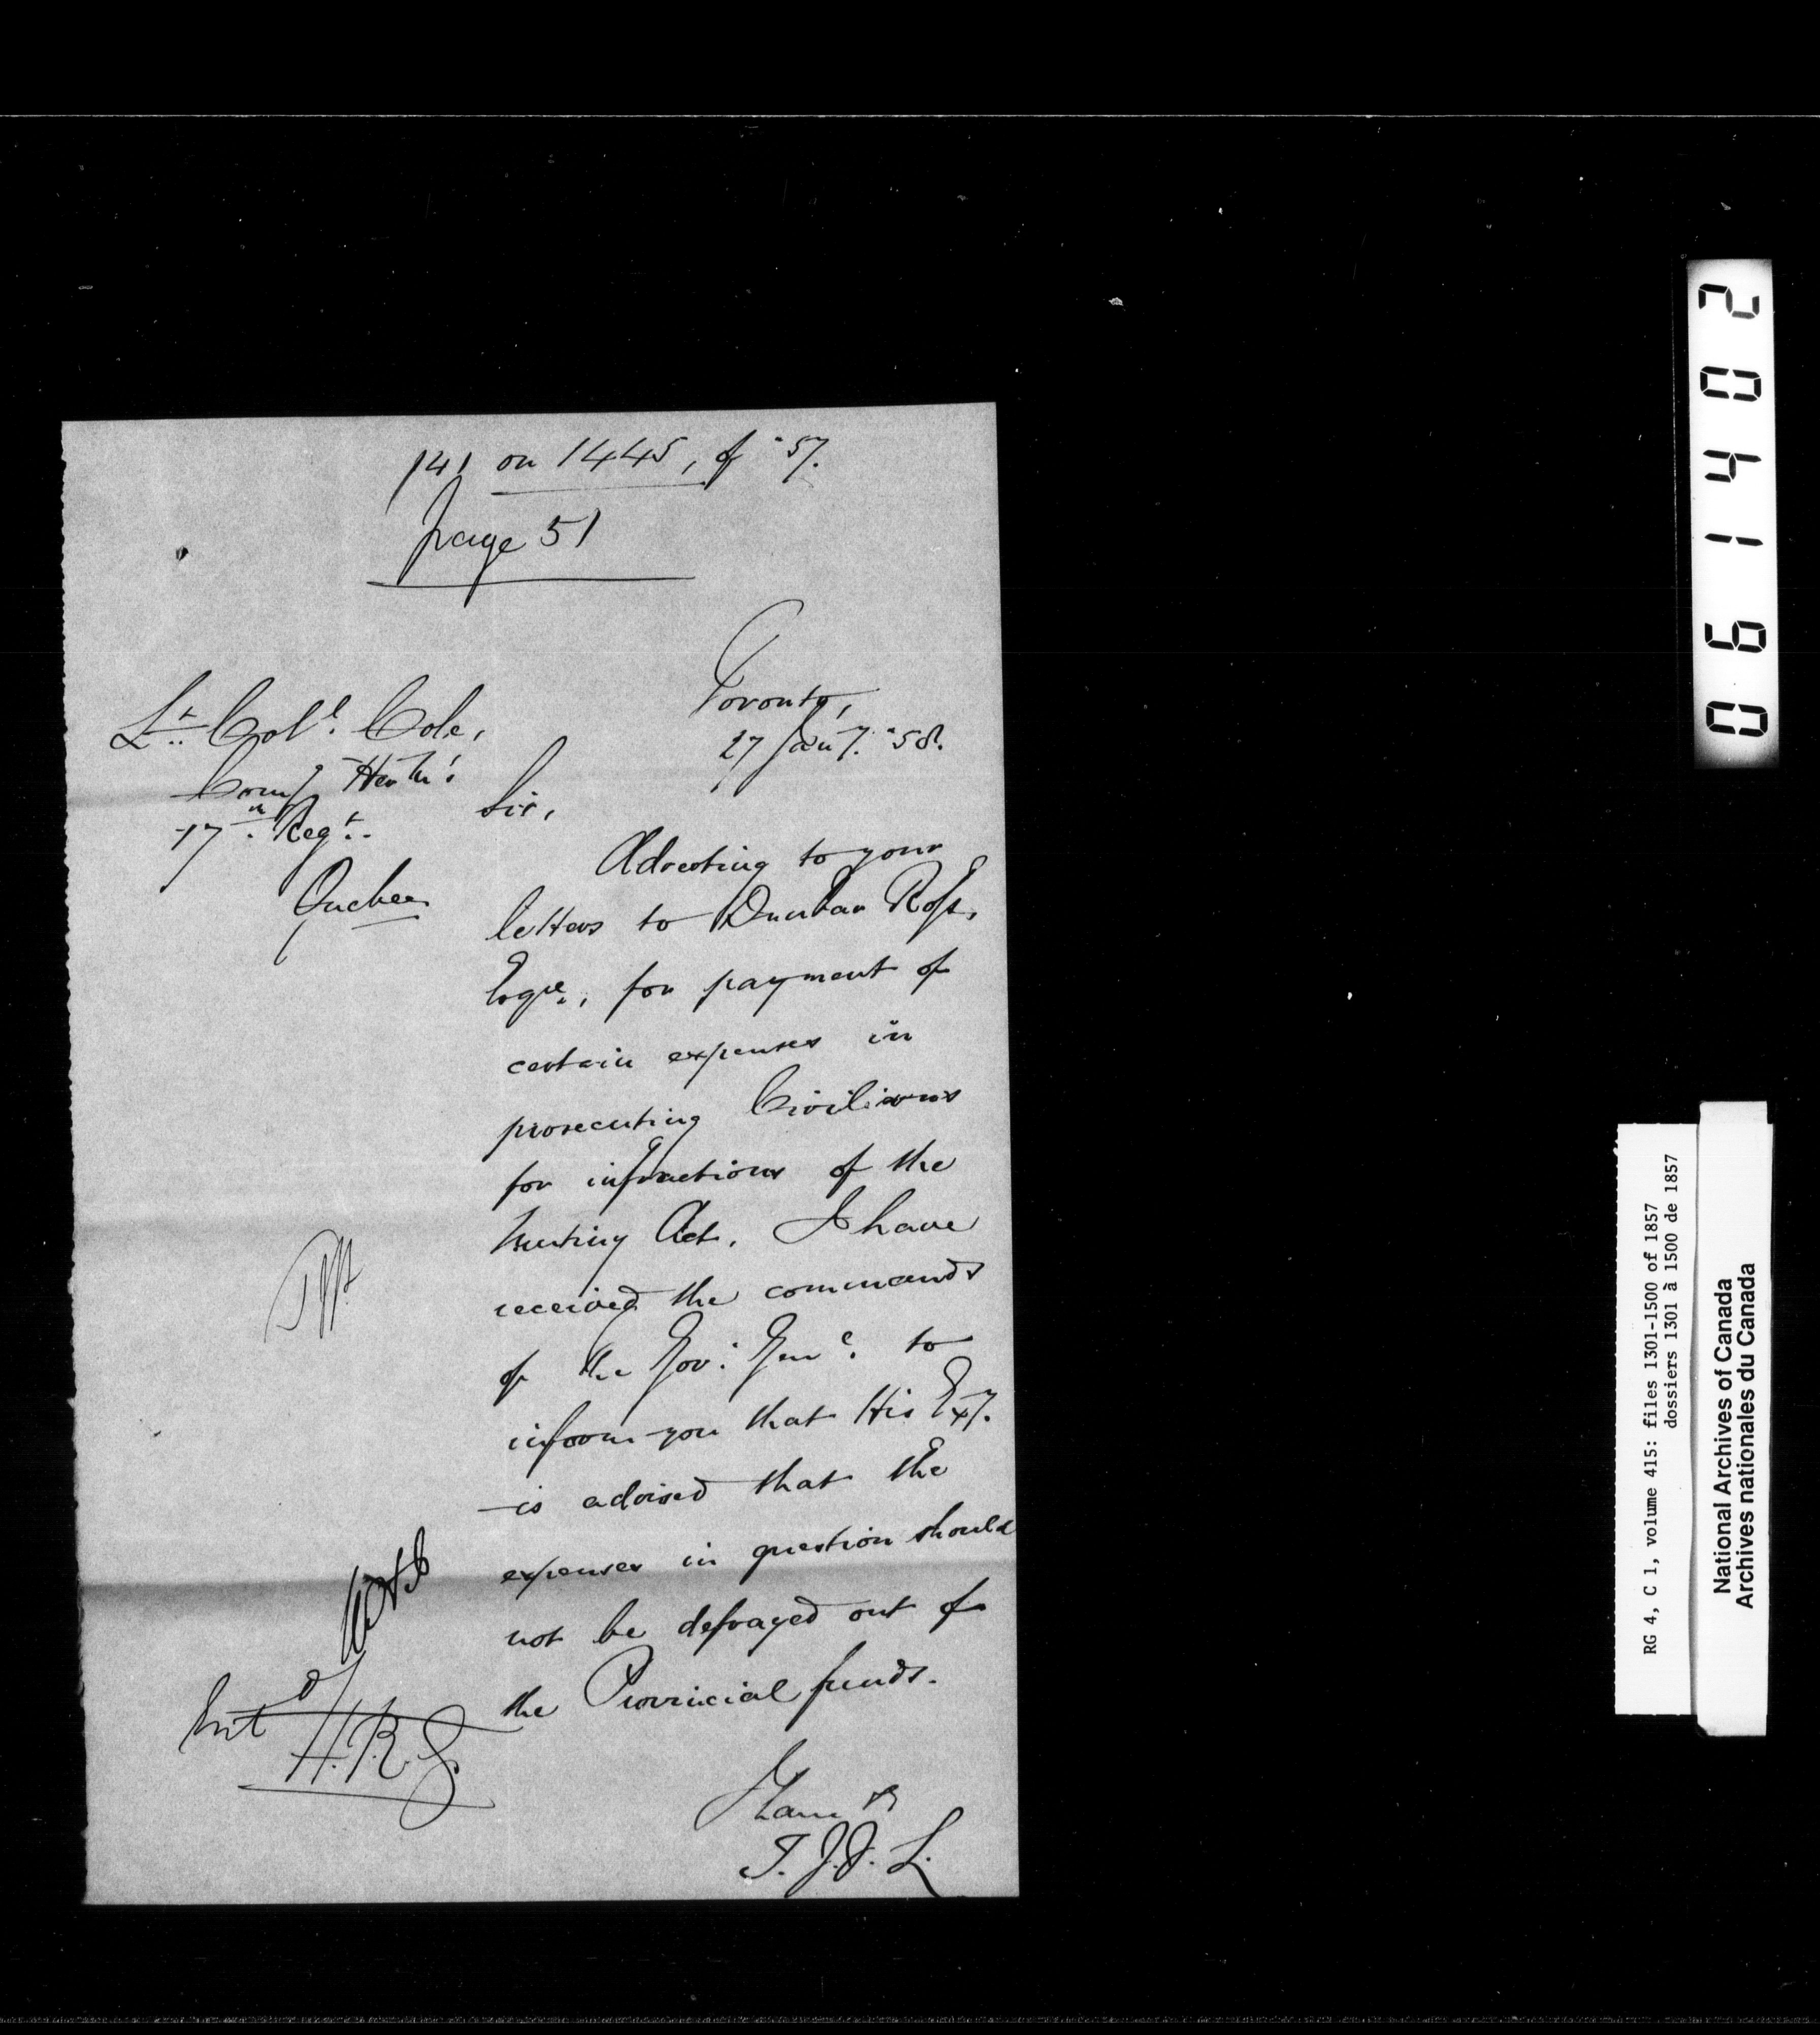 141 on 1445, of '57.
page 51
Toronto,
27 Jan'y. '58.
Lt. Col<sup>l</sup>. Cole,
Com<sup>g</sup>
17<sup>th</sup>. Reg<sup>t</sup>.
Quebec
Sir,
Adverting to your
letters to Dunbar Ross,
Esq<sup>re</sup>., for payment of
certain expenses in
prosecuting Civilians
for infractions of the
Mutiny Act. I have
received the commands
of the Gov<sup>r</sup>. Gen<sup>l</sup>. to
inform you that His Ex<sup>y</sup>.
is advised that the
expenses in question should
not be defrayed out of
the Provincial funds.
Ent<sup>d</sup>
H.R.S.
I have &
T.J.J.L.
061402
RG 4, C 1, volume 415: files 1301-1500 of 1857
dossiers 1301 à 1500 de 1857
National Archives of Canada
Archives nationales du Canada